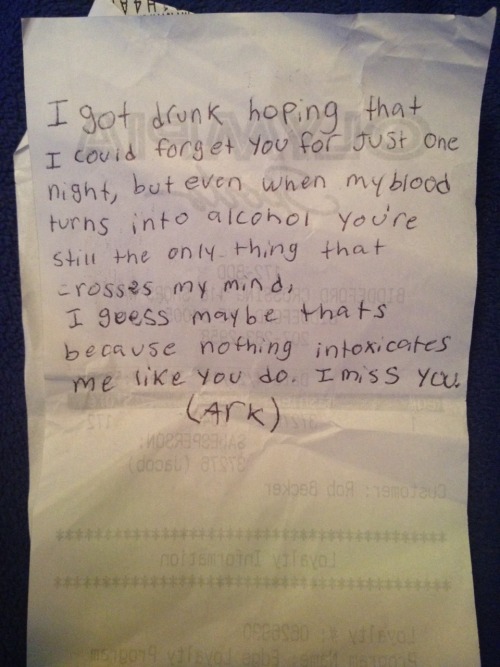 I got drunk hoping that
I could forget you for just one
night, but even when my blood
turns into alcohol you're
still the only thing that
crosses my mind,
I guess maybe thats
because nothing intoxicates
me like you do. I miss you.
(Ark)
172
SALESPERSON:
37276 (Jacob)
Customer: Rob Becker
Loyalty Information
Loyalty #: 0626930
Program Name: Edge Loyalty Program